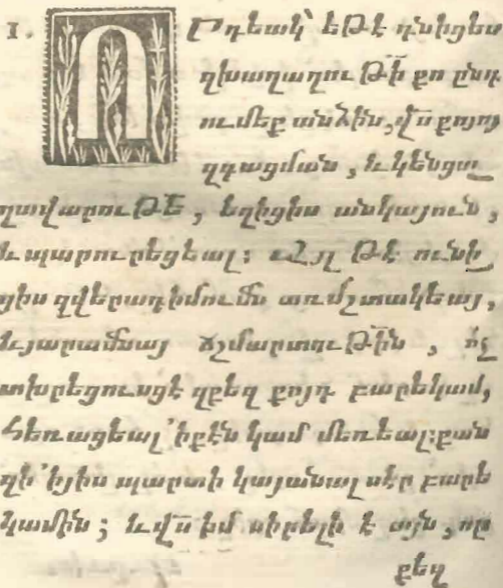 1. ՈՐդեակ՝ եթէ դնիցես
զխաղաղութի՟ քո ընդ
ումեք անձին, վս՟ քոյոյ
զգացման, և կենցա
ղավարութե՟, եղիցիս անկայուն,
և պարուրեցեալ: Այլ թէ ունի
ցիս զվերադիմումն առ մշտակեայ,
և յարամնայ ճշմարտութի՟ն, ոչ
տխրեցուսցէ զքեզ քոյդ բարեկամ,
հեռացեալ ՚ի քէն կամ մեռեալ: քան
զի ՚ի յիս պարտի կայանալ սէր բարե
կամին; և վս՟ իմ սիրելի է այն, որ
քեզ